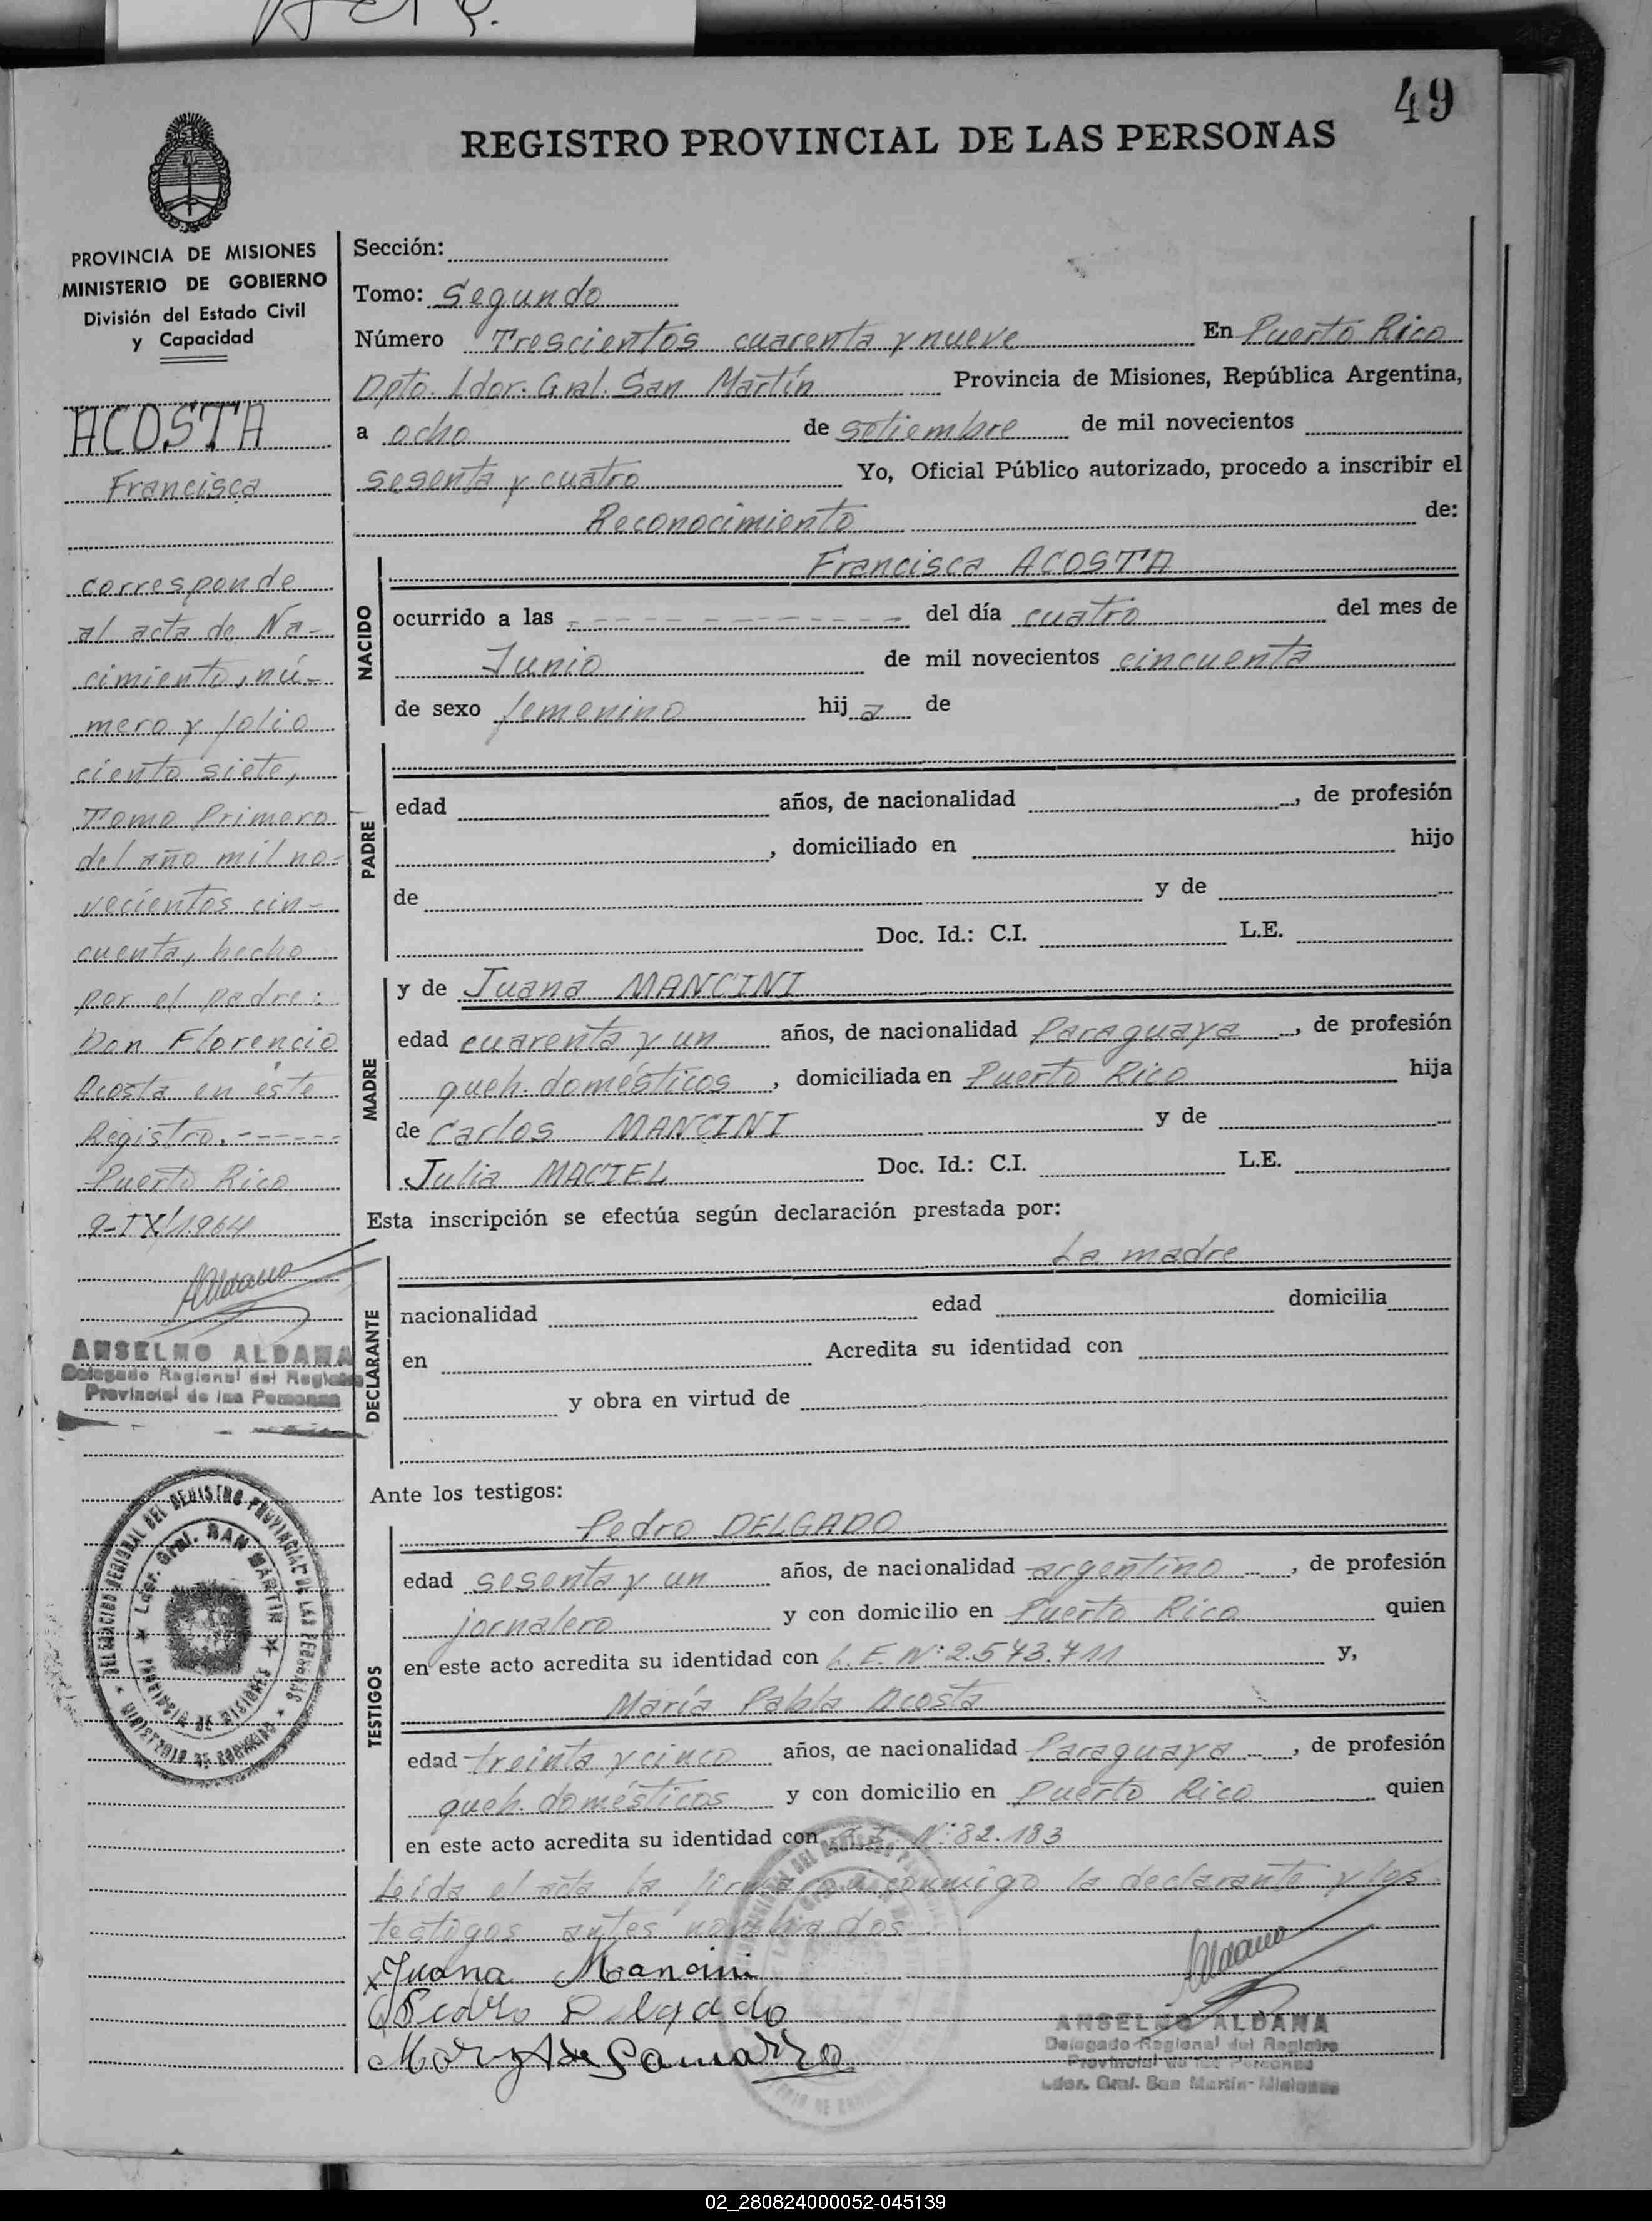 49
REGISTRO PROVINCIAL DE LAS PERSONAS
PROVINCIA DE MISIONES
MINISTERIO DE GOBIERNO
División del Estado Civil
y Capacidad
ACOSTA
Francisca
corresponde
al acta de Na-
cimiento, nú-
mero y folio
ciento siete,
Tomo Primero
del año mil no-
vecientos cin-
cuenta, hecho
por el padre:
Don Florencio
Acosta en éste
Registro. ------
Puerto Rico
9-IX/1964
ANSELMO ALDANA
Delegado Regional del Registro
Provincial de las Personas
DELEGACION REGIONAL DEL REGISTRO PROVINCIAL DE LAS PERSONAS
Ldor. Gral. SAN MARTIN
PROVINCIA DE MISIONES
MINISTERIO DE GOBIERNO
Sección:
Tomo: Segundo
Número Trescientos cuarenta y nueve En Puerto Rico
Dpto. Ldor. Gral. San Martín Provincia de Misiones, República Argentina,
a ocho de setiembre de mil novecientos
sesenta y cuatro Yo, Oficial Público autorizado, procedo a inscribir el
Reconocimiento de:
NACIDO
Francisca ACOSTA
ocurrido a las - - - - - - - - - - - del día cuatro del mes de
Junio de mil novecientos cincuenta
de sexo femenino hija de
PADRE
edad años, de nacionalidad , de profesión
, domiciliado en hijo
de y de
Doc. Id.: C.I. L.E.
MADRE
y de Juana MANCINI
edad cuarenta y un años, de nacionalidad Paraguaya, de profesión
queh. domésticos, domiciliada en Puerto Rico hija
de Carlos MANCINI y de
Julia MACIEL Doc. Id.: C.I. L.E.
Esta inscripción se efectúa según declaración prestada por:
DECLARANTE
La madre
nacionalidad edad domicilia
en Acredita su identidad con
y obra en virtud de
Ante los testigos:
TESTIGOS
Pedro DELGADO
edad sesenta y un años, de nacionalidad argentino, de profesión
jornalero y con domicilio en Puerto Rico quien
en este acto acredita su identidad con L.E. Nº: 2.573.711 y,
María Pabla Acosta
edad treinta y cinco años, de nacionalidad Paraguaya, de profesión
queh. domésticos y con domicilio en Puerto Rico quien
en este acto acredita su identidad con Nº: 82.183
Leída el acta la firmaron conmigo la declarante y los
testigos antes nombrados
Juana Mancini
Pedro Delgado
ANSELMO ALDANA
Delegado Regional del Registro
Provincial de las Personas
Ldor. Gral. San Martín-Misiones
02_280824000052-045139